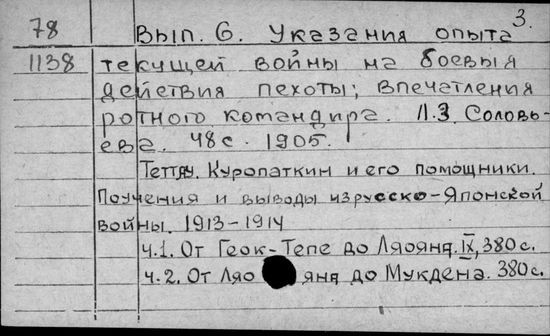 3.
78 Вып. 6. Указания опыта
1138 текущей войны на боевыя
действия пехоты; впечатления
ротного командира. Л.З. Соловь-
ева. 48 с. 1905.
Теттау. Куропаткин и его помощники.
Поучения и выводы из русско-Японской
войны. 1913-1914
ч.1. От Геок-Тепе до Ляояна. IX, 380 с.
ч.2. От Ляо яна до Мукдена. 380 с.